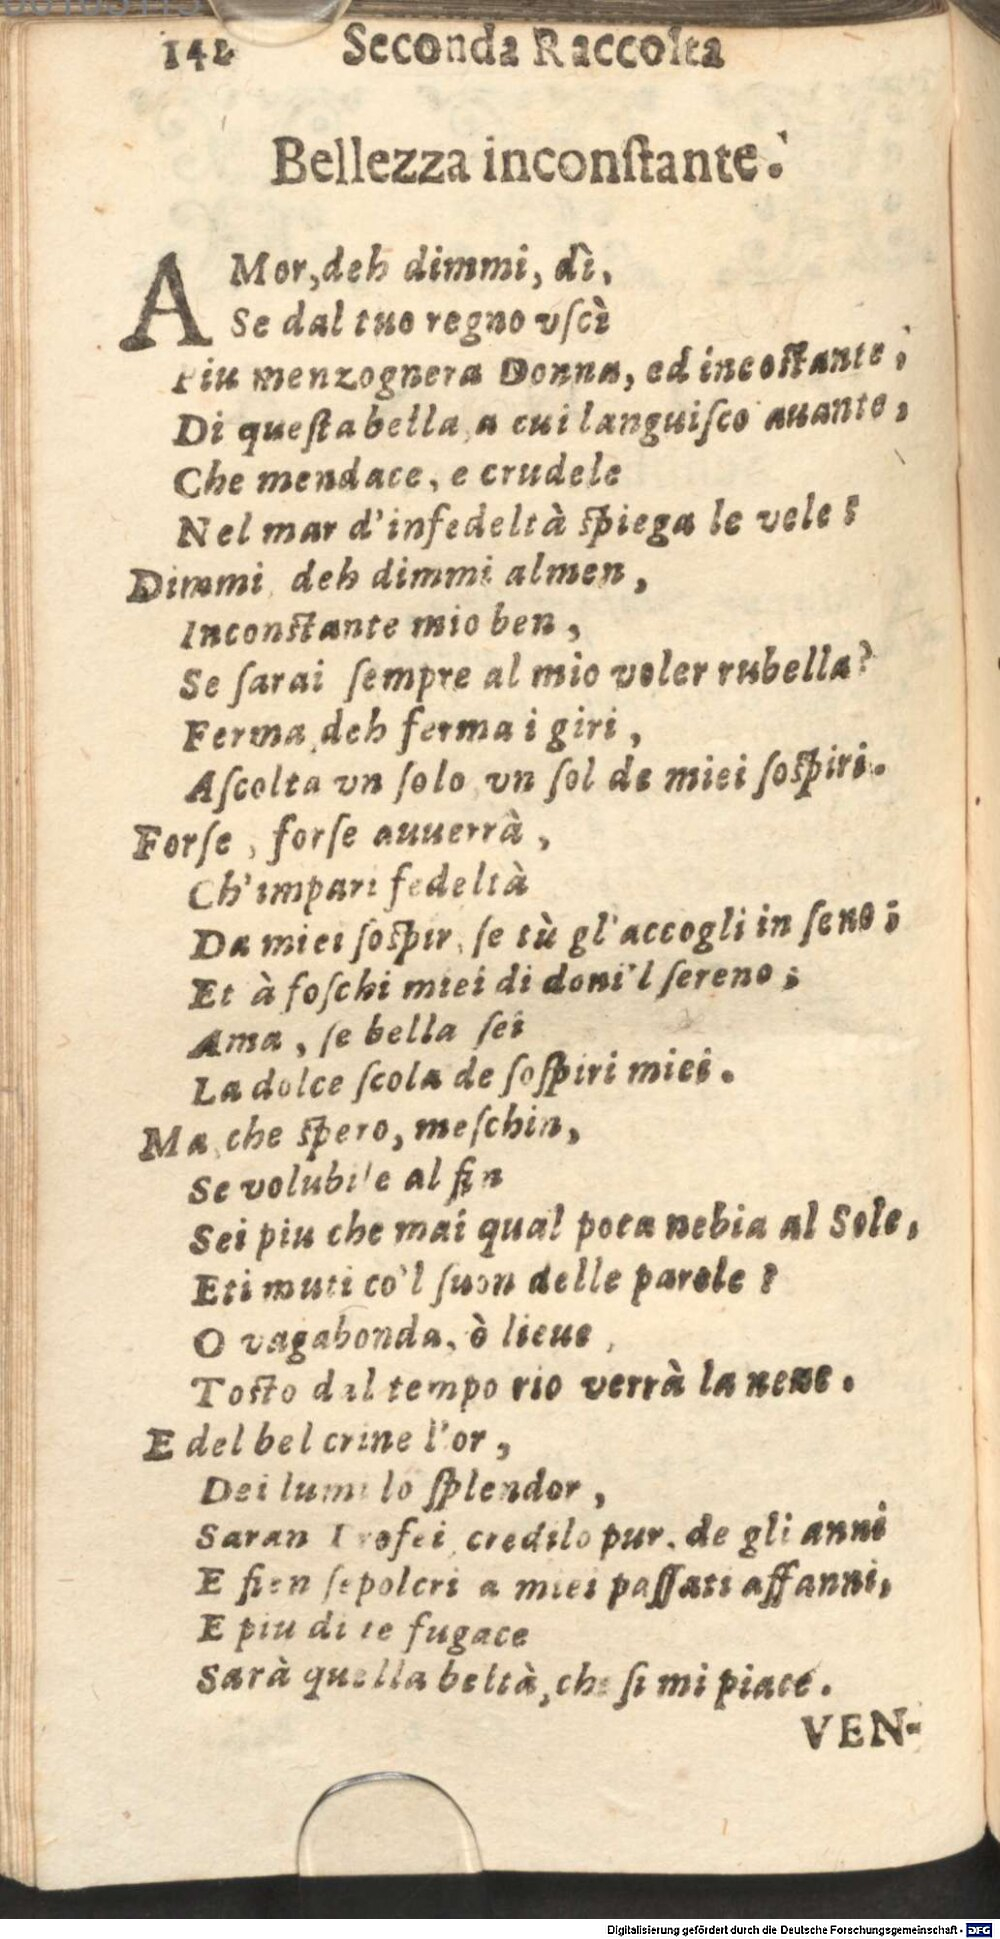 142 Seconda Raccolta
Bellezza inconſtante.
AMor, deh dimmi, dì,
Se dal tuo regno vſcì
Piu menzognera Donna, ed incoſtante,
Di queſta bella, a cui languiſco auante,
Che mendace, e crudele
Nel mar d'infedeltà ſpiega le vele?
Dimmi, deh dimmi almen,
Inconſtante mio ben,
Se ſarai ſempre al mio voler rubella?
Ferma, deh ferma i giri,
Aſcolta vn ſolo, vn ſol de miei ſoſpiri.
Forſe, forſe auuerrà,
Ch'impari fedeltà
Da miei ſoſpir, ſe tù gl'accogli in ſeno;
Et à foſchi miei di doni'l ſereno;
Ama, ſe bella ſei
La dolce ſcola de ſoſpiri miei.
Ma, che ſpero, meſchin,
Se volubile al fin
Sei piu che mai qual poca nebia al Sole,
E ti muti co'l ſuon delle parole?
O vagabonda, ò lieue,
Toſto dal tempo rio verrà la neue.
E del bel crine l'or,
Dei lumi lo ſplendor,
Saran Trofei, credilo pur, de gli anni
E fien ſepolcri a miei paſſati affanni,
E piu di te fugace
Sarà quella beltà, che ſi mi piace.
VEN-
Digitalisierung gefördert durch die Deutsche Forschungsgemeinschaft - DFG